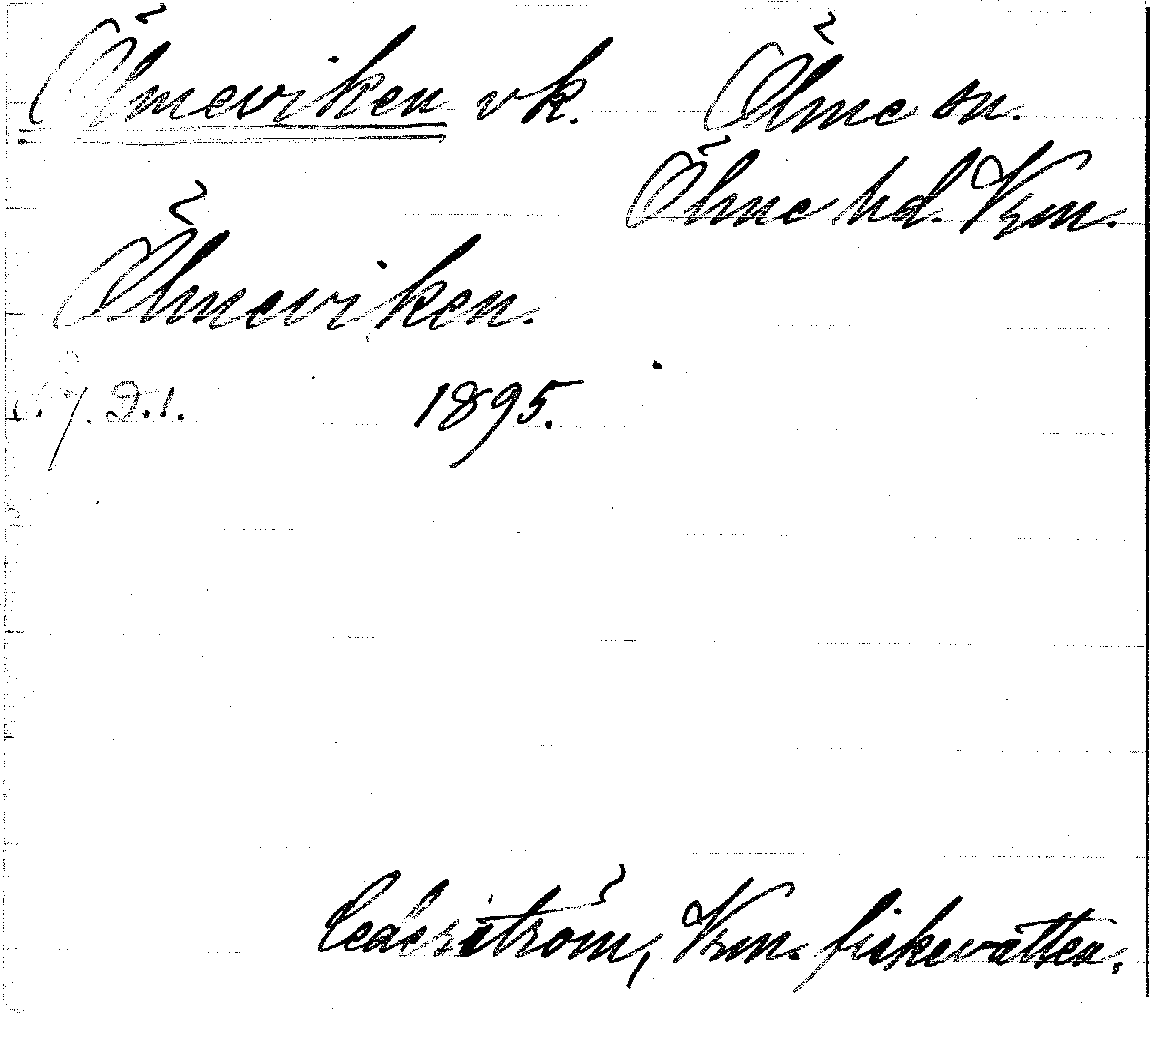 Ölmeviken vk. Ölme sn.
Ölme hd. Vrm.
Ölmeviken.
1895.
Cederström, Vrm. fiskevatten.